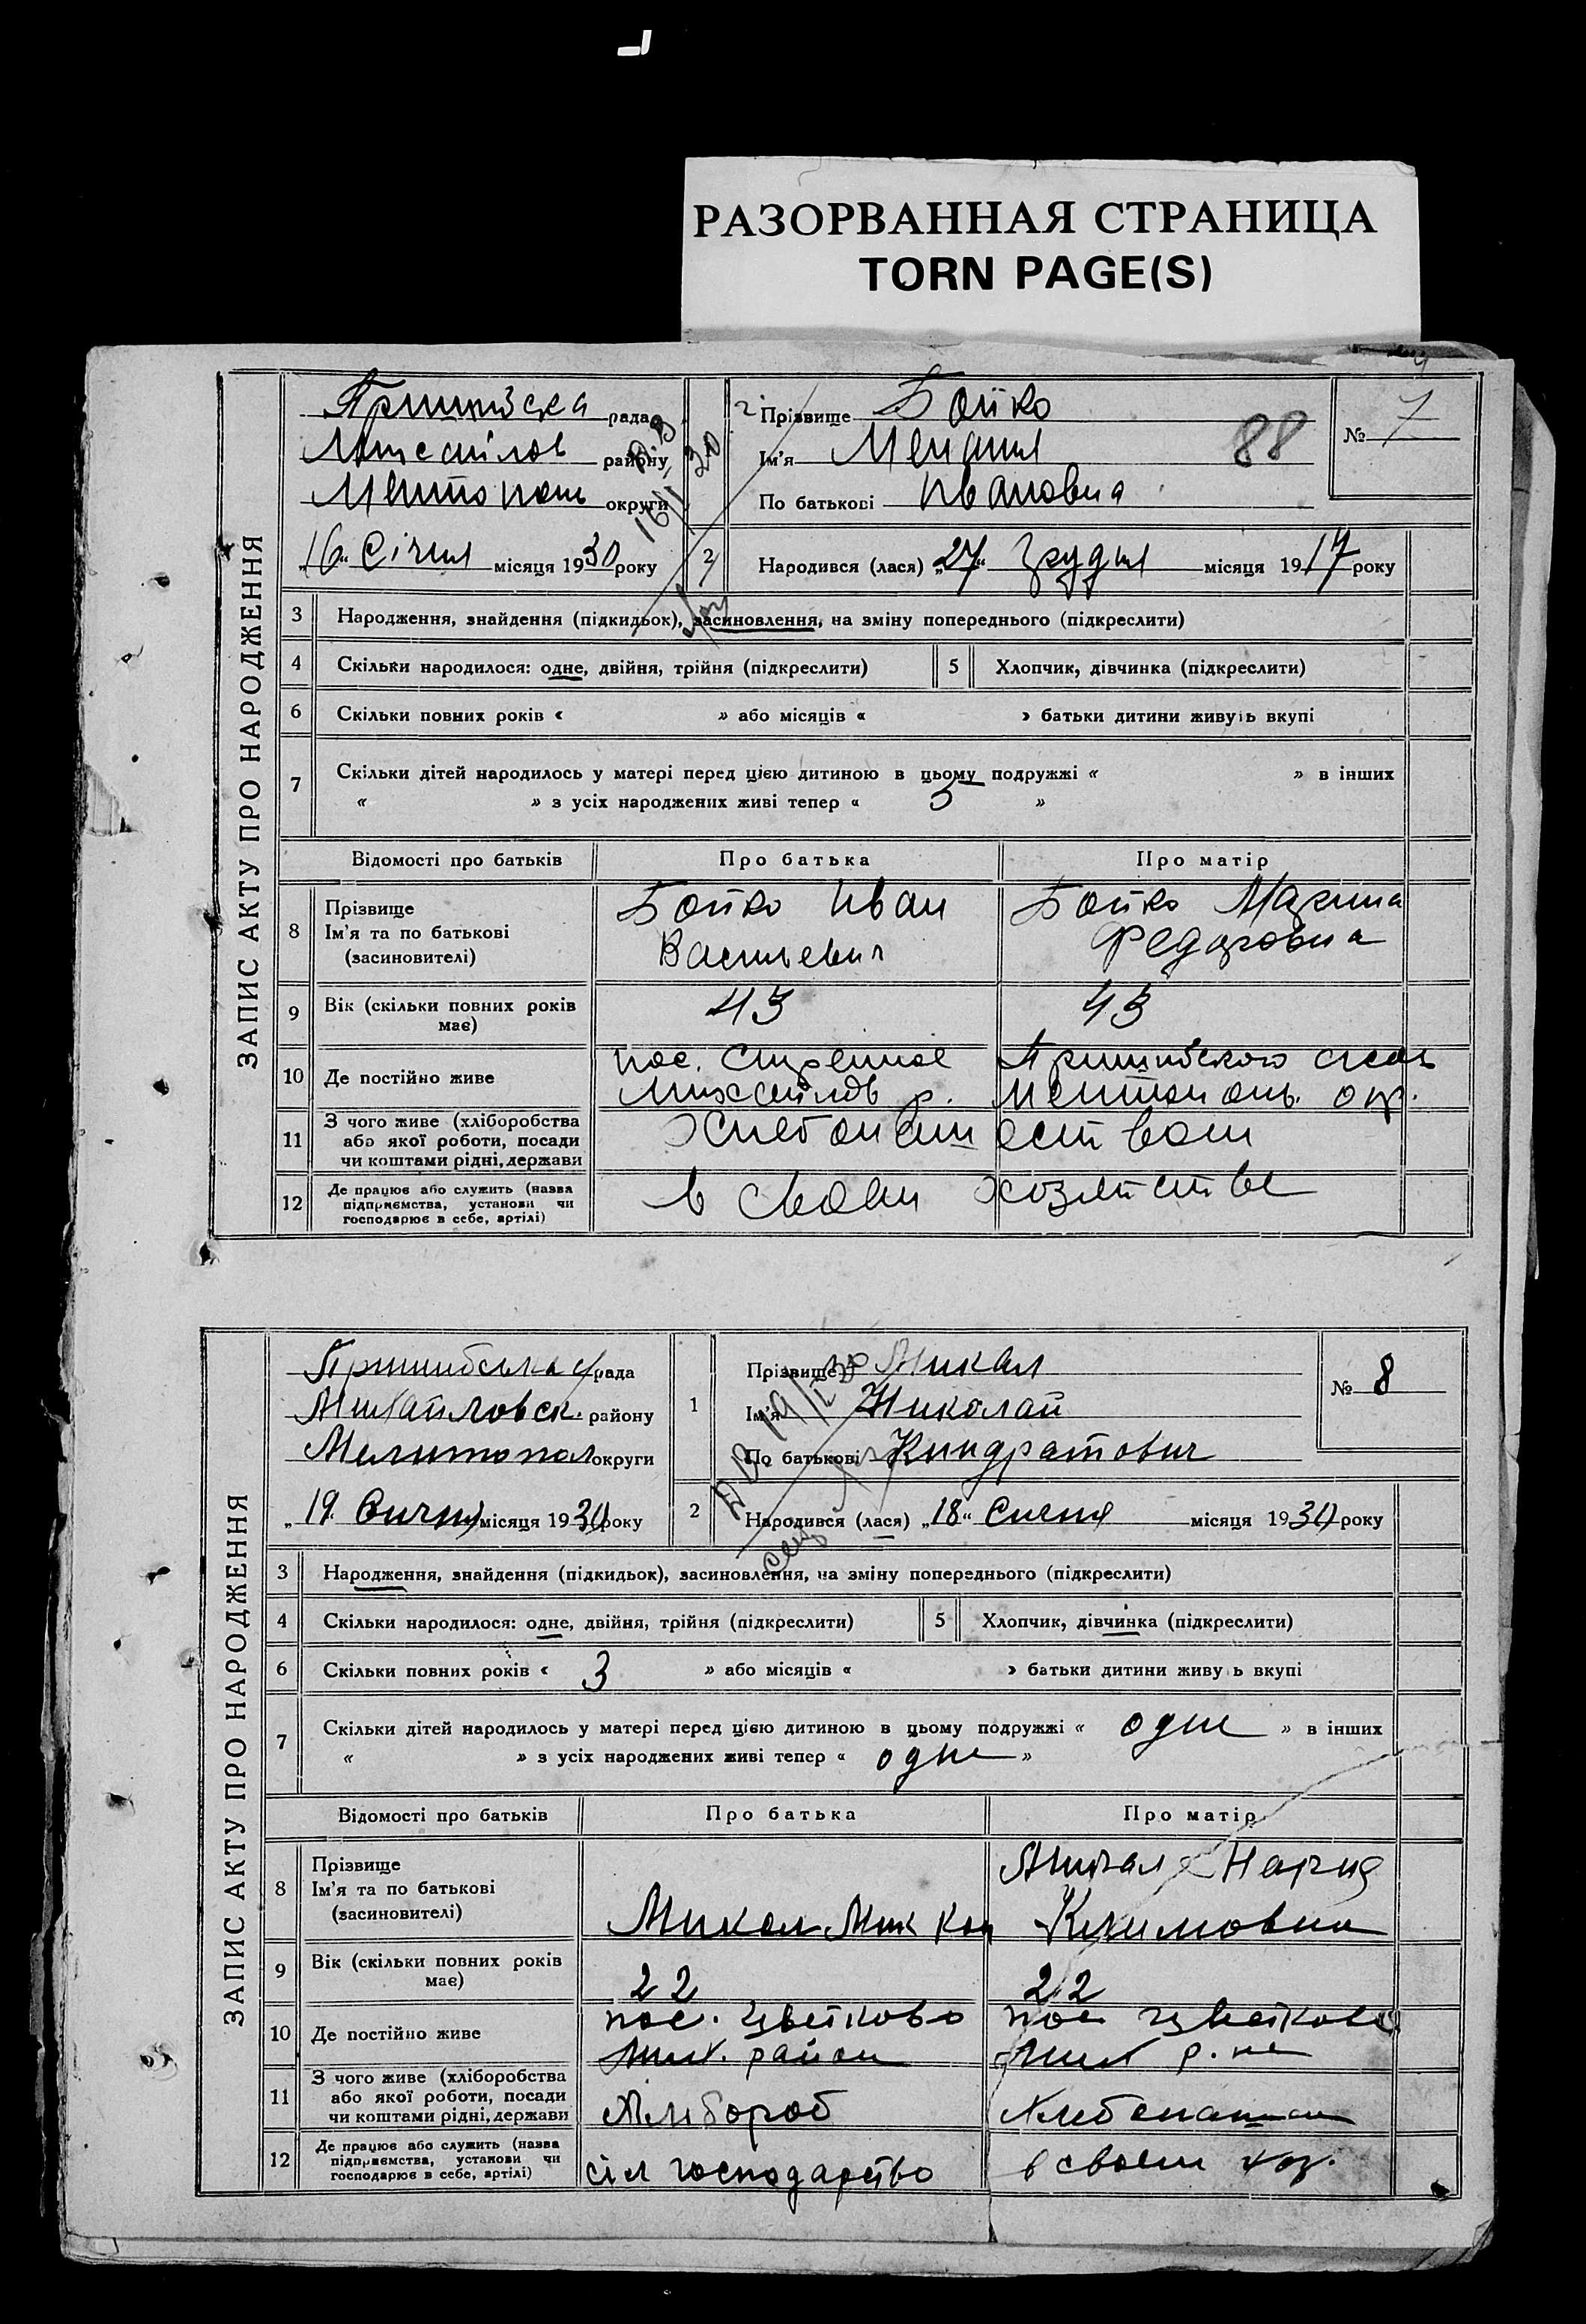 РАЗОРВАННАЯ СТРАНИЦА
TORN PAGE(S)
ЗАПИС АКТУ ПРО НАРОДЖЕННЯ
рада
Михайлов району
Мелитополь округи
„16“ Січня місяця 1930 року
Прізвище Бойко
Ім'я Мелания
По батькові Ивановна
88
№ 7
2 Народився (лася) „27“ грудня місяця 1917 року
3 Народження, знайдення (підкидьок), засиновлення, на зміну попереднього (підкреслити)
4 Скільки народилося: одне, двійня, трійня (підкреслити) 5 Хлопчик, дівчинка (підкреслити)
6 Скільки повних років « » або місяців « » батьки дитини живуть вкупі
7 Скільки дітей народилось у матері перед цією дитиною в цьому подружжі « » в інших
« » з усіх народжених живі тепер « 3 »
Відомості про батьків Про батька Про матір
8 Прізвище
Ім'я та по батькові
(засиновителі)
Бойко Иван
Васильевич
Бойко Марина
Федоровна
9 Вік (скільки повних років
має)
43 43
10 Де постійно живе
пос.
Михайлов р. Мелитополь. окр.
11 З чого живе (хліборобства
або якої роботи, посади
чи коштами рідні, держави
Хлебопашеством
12 Де працює або служить (назва
підприємства, установи чи
господарює в себе, артілі)
в своем хозяйстве
ЗАПИС АКТУ ПРО НАРОДЖЕННЯ
Пришибська рада
Михайловск. району
Мелитопол округи
„19“ Сичня місяця 1930 року
1 Прізвище Микал
Ім'я Николай
По батькові Киндратович
№ 8
2 Народився (лася) „18“ місяця 1930 року
3 Народження, знайдення (підкидьок), засиновлення, на зміну попереднього (підкреслити)
4 Скільки народилося: одне, двійня, трійня (підкреслити) 5 Хлопчик, дівчинка (підкреслити)
6 Скільки повних років « 3 » або місяців « » батьки дитини живу ь вкупі
7 Скільки дітей народилось у матері перед цією дитиною в цьому подружжі « одне » в інших
« » з усіх народжених живі тепер « одне »
Відомості про батьків Про батька Про матір
8 Прізвище
Ім'я та по батькові
(засиновителі)
Микал
Микал
Климовна
9 Вік (скільки повних років
має)
22 22
10 Де постійно живе
пос. Цветково пос Цветково
Мих. район Мих р.не
11 З чого живе (хліборобства
або якої роботи, посади
чи коштами рідні, держави
Хлибороб
12 Де працює або служить (назва
підприємства, установи чи
господарює в себе, артілі)
сіл господарство в своем хоз.